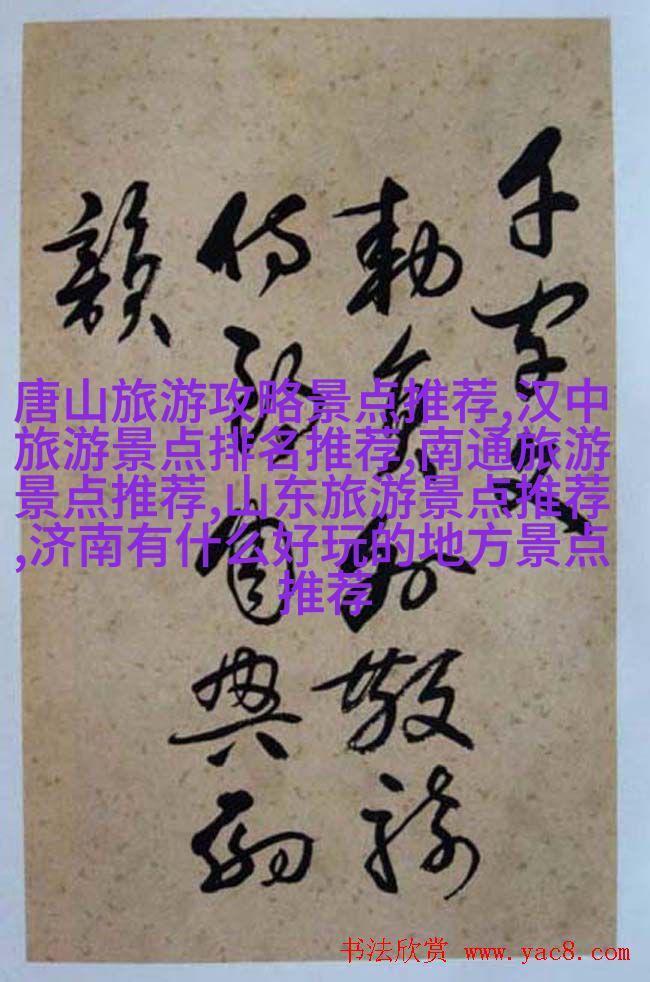 千字文
勅員外散騎
侍郎周興嗣
韻
唐山旅游攻略景点推荐,汉中
旅游景点排名推荐,南通旅游
景点推荐,山东旅游景点推荐
,济南有什么好玩的地方景点
推荐
书法欣赏 www.yac8.com